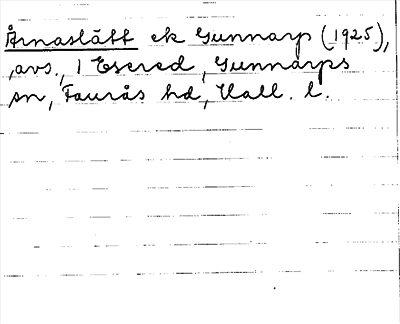 Årnaslätt ek Gunnarp (1925),
avs., 1 Esered, Gunnarps
sn, Faurås hd, Hall. l.